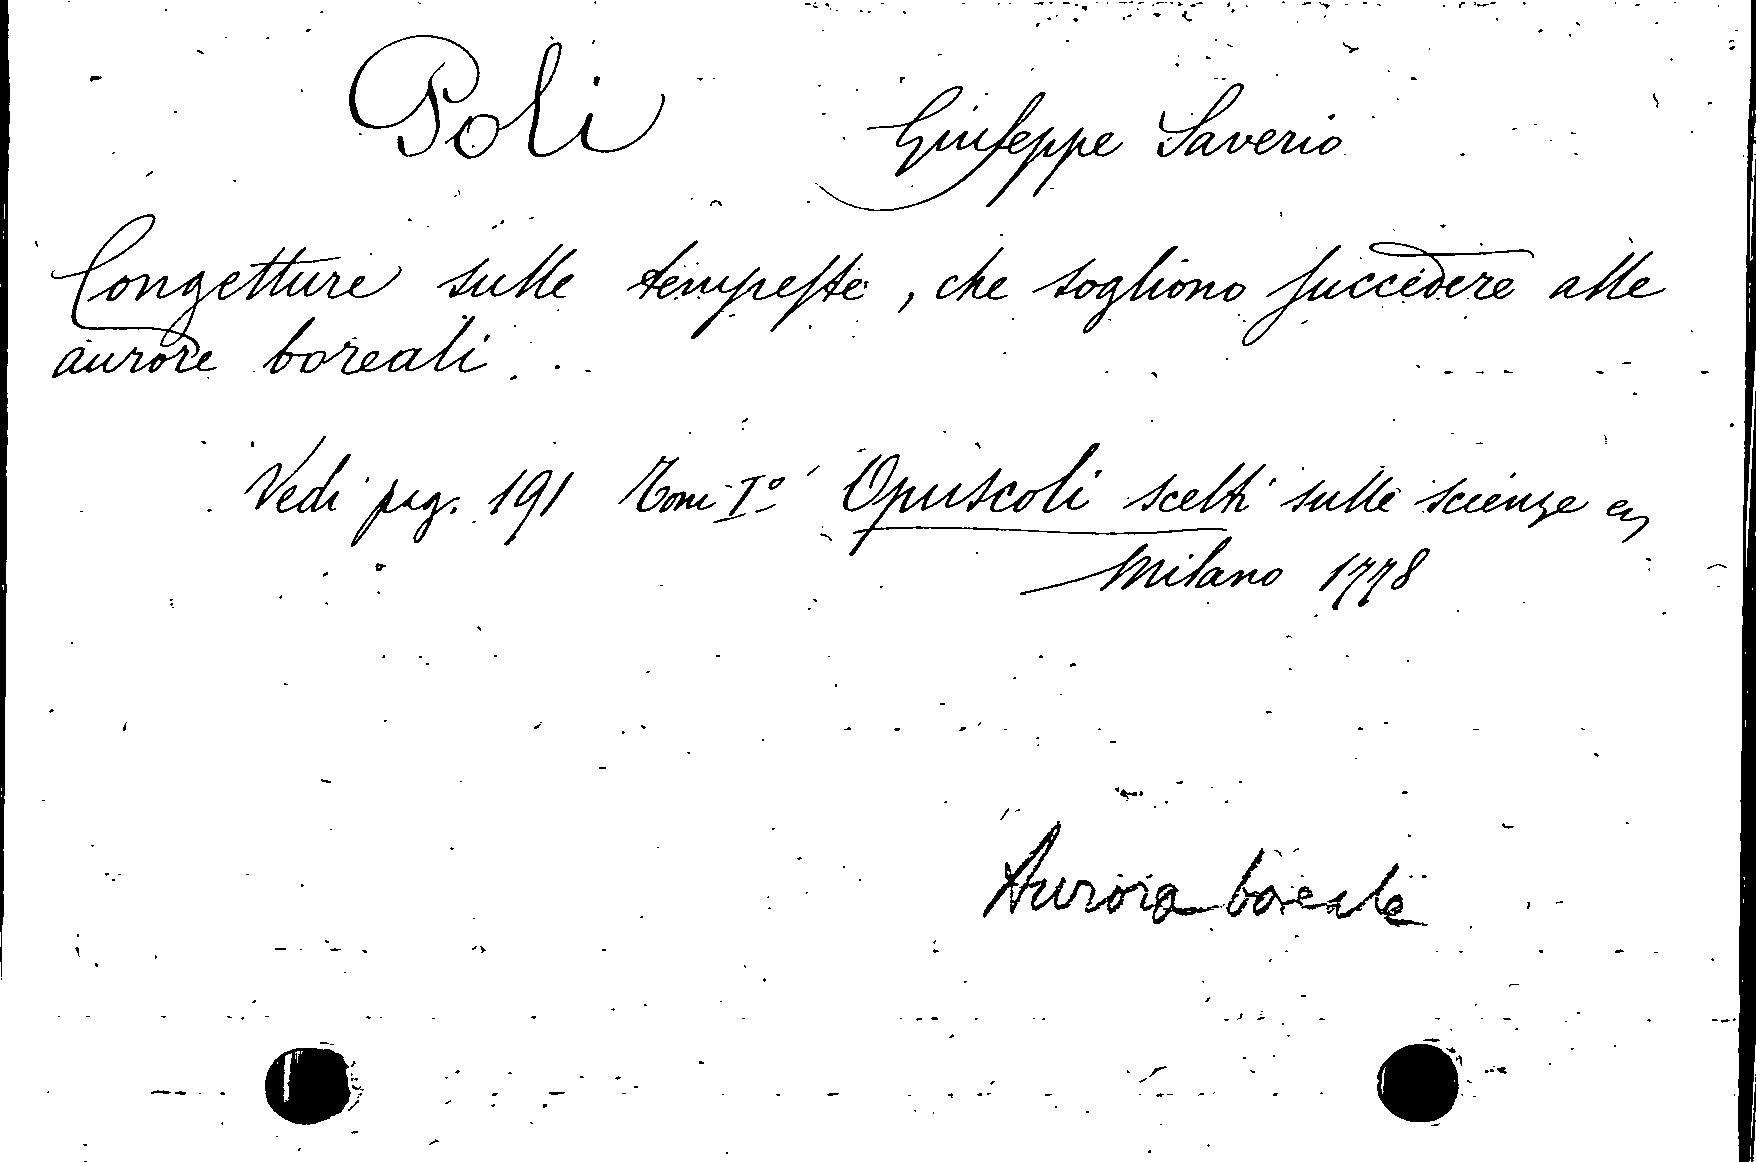 Poli Giuseppe Saverio
Congetture sulle tempeste, che sogliono succedere alle
aurore boreali.
Vedi pag. 191 Tom I.º Opuscoli scelti sulle scienze
Milano 1778
Aurora boreale